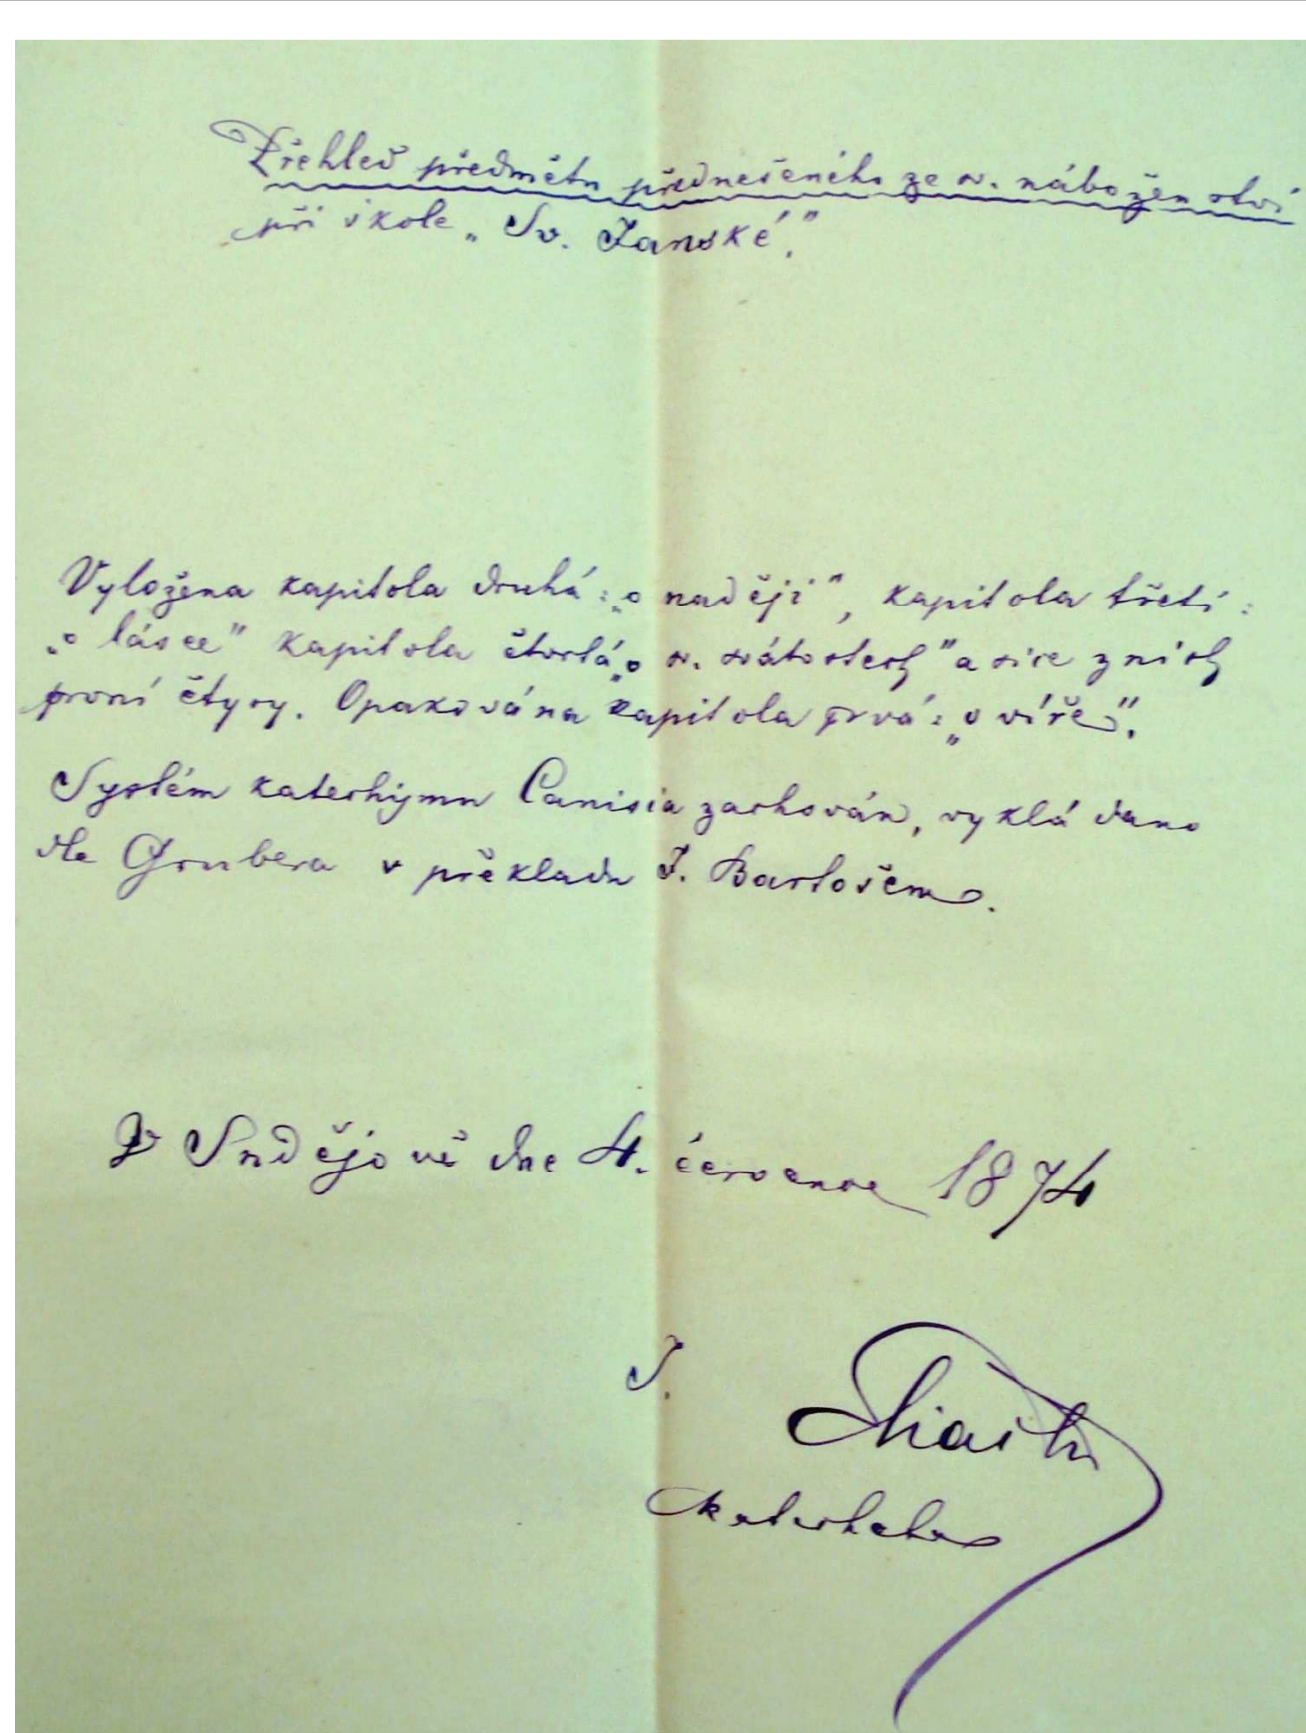 Přehled předmětu přednešeného ze sv. náboženství
při škole „Sv. Janské."
Vyložena kapitola druhá: „o naději", kapitola třetí:
„o lásce" kapitola čtvrtá „o sv. svátostech" a sice z nich
první čtyry. Opakována kapitola prvá: „o víře".
Systém katechysmu Canisia zachován, vykládáno
dle Grubera v překladu J. Bartošem.
V Sudějově dne 4. července 1874
J.
katecheta